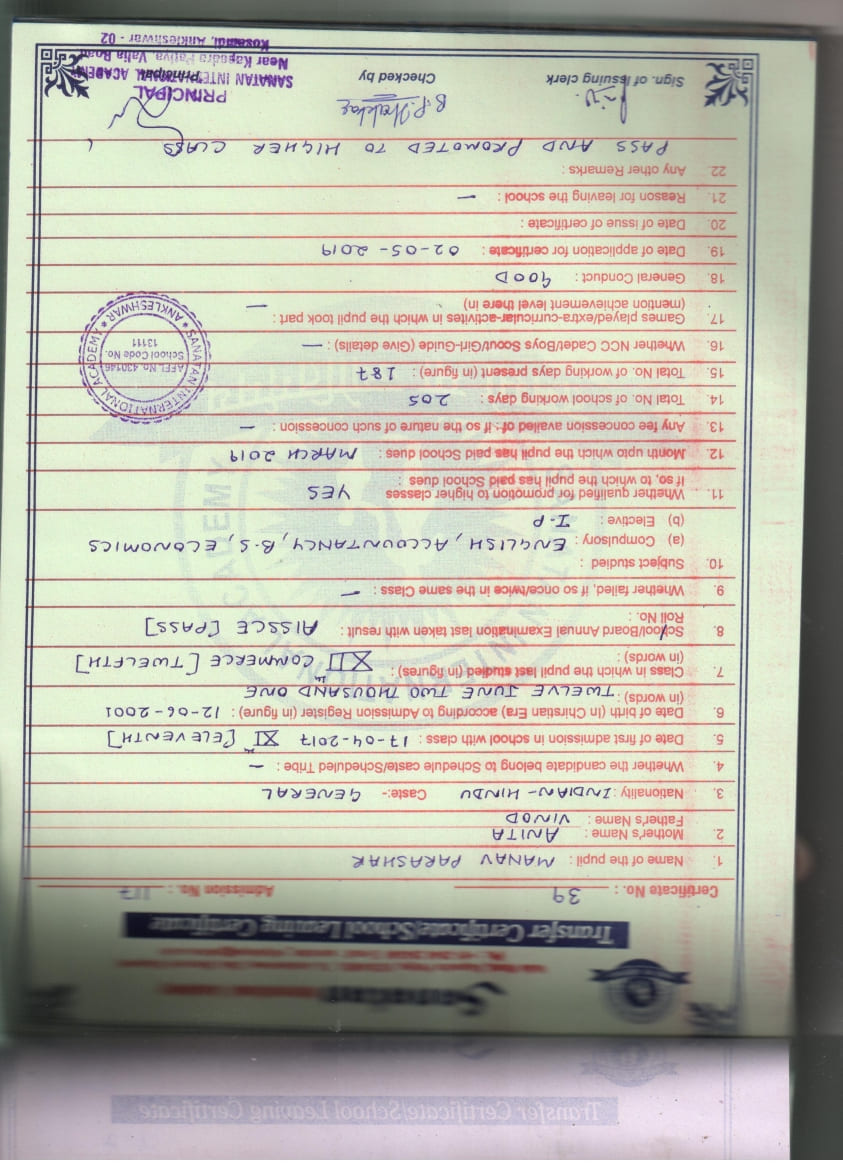 Transfer Certificate/School Leaving Certificate
Certificate No. : 39 Admission No. : 117
1. Name of the pupil : MANAV PARASHAR
2. Mother's Name : ANITA
Father's Name : VINOD
3. Nationality : INDIAN-HINDU Caste:- GENERAL
4. Whether the candidate belong to Schedule caste/Scheduled Tribe : —
5. Date of first admission in school with class : 17-04-2017 XI [ELEVENTH]
6. Date of birth (In Chirstian Era) according to Admission Register (in figure) : 12-06-2001
(in words) : TWELVE JUNE TWO THOUSAND ONE
7. Class in which the pupil last studied (in figures) : XII COMMERCE [TWELFTH]
(in words) :
8. School/Board Annual Examination last taken with result : AISSCE [PASS]
Roll No. :
9. Whether failed, if so once/twice in the same Class : —
10. Subject studied :
(a) Compulsory : ENGLISH, ACCOUNTANCY, B.S, ECONOMICS
(b) Elective : I.P
11. Whether qualified for promotion to higher classes YES
If so, to which the pupil has paid School dues :
12. Month upto which the pupil has paid School dues : MARCH 2019
13. Any fee concession availed of : If so the nature of such concession : —
14. Total No. of school working days : 205
15. Total No. of working days present (in figure) : 187
16. Whether NCC Cadet/Boys Scout/Girl-Guide (Give details) : —
17. Games played/extra-curricular-activites in which the pupil took part :
(mention achievement level there in) —
18. General Conduct : GOOD
19. Date of application for certificate : 02-05-2019
20. Date of issue of certificate :
21. Reason for leaving the school : —
22. Any other Remarks :
PASS AND PROMOTED TO HIGHER CLASS
Sign. of issuing clerk Checked by Principal
PRINCIPAL
SANATAN INTERNATIONAL ACADEMY
Near Kapodra Patiya, Valia Road
Kosamdi, Ankleshwar - 02
SANATAN INTERNATIONAL ACADEMY ★ ANKLESHWAR ★
AFFL. No. 430146
School Code No.
13111
SANATAN INTERNATIONAL ACADEMY
Transfer Certificate/School Leaving Certificate